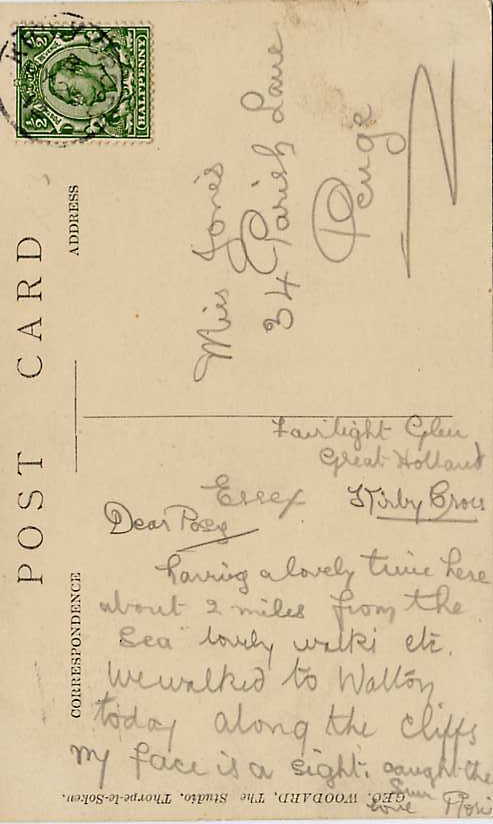 POST CARD
CORRESPONDENCE
ADDRESS
HALFPENNY
Miss Jones
34 Parish Lane
Penge
Fairlight Glen
Great Holland
Kirby Cross
Essex
Dear Posy
having a lovely time here
about 2 miles from the
Sea lovely walks etc.
We walked to Walton
today along the cliffs
My face is a sight. caught the
Sun
Love
GEO. WOODARD, The Studio, Thorpe-le-Soken.